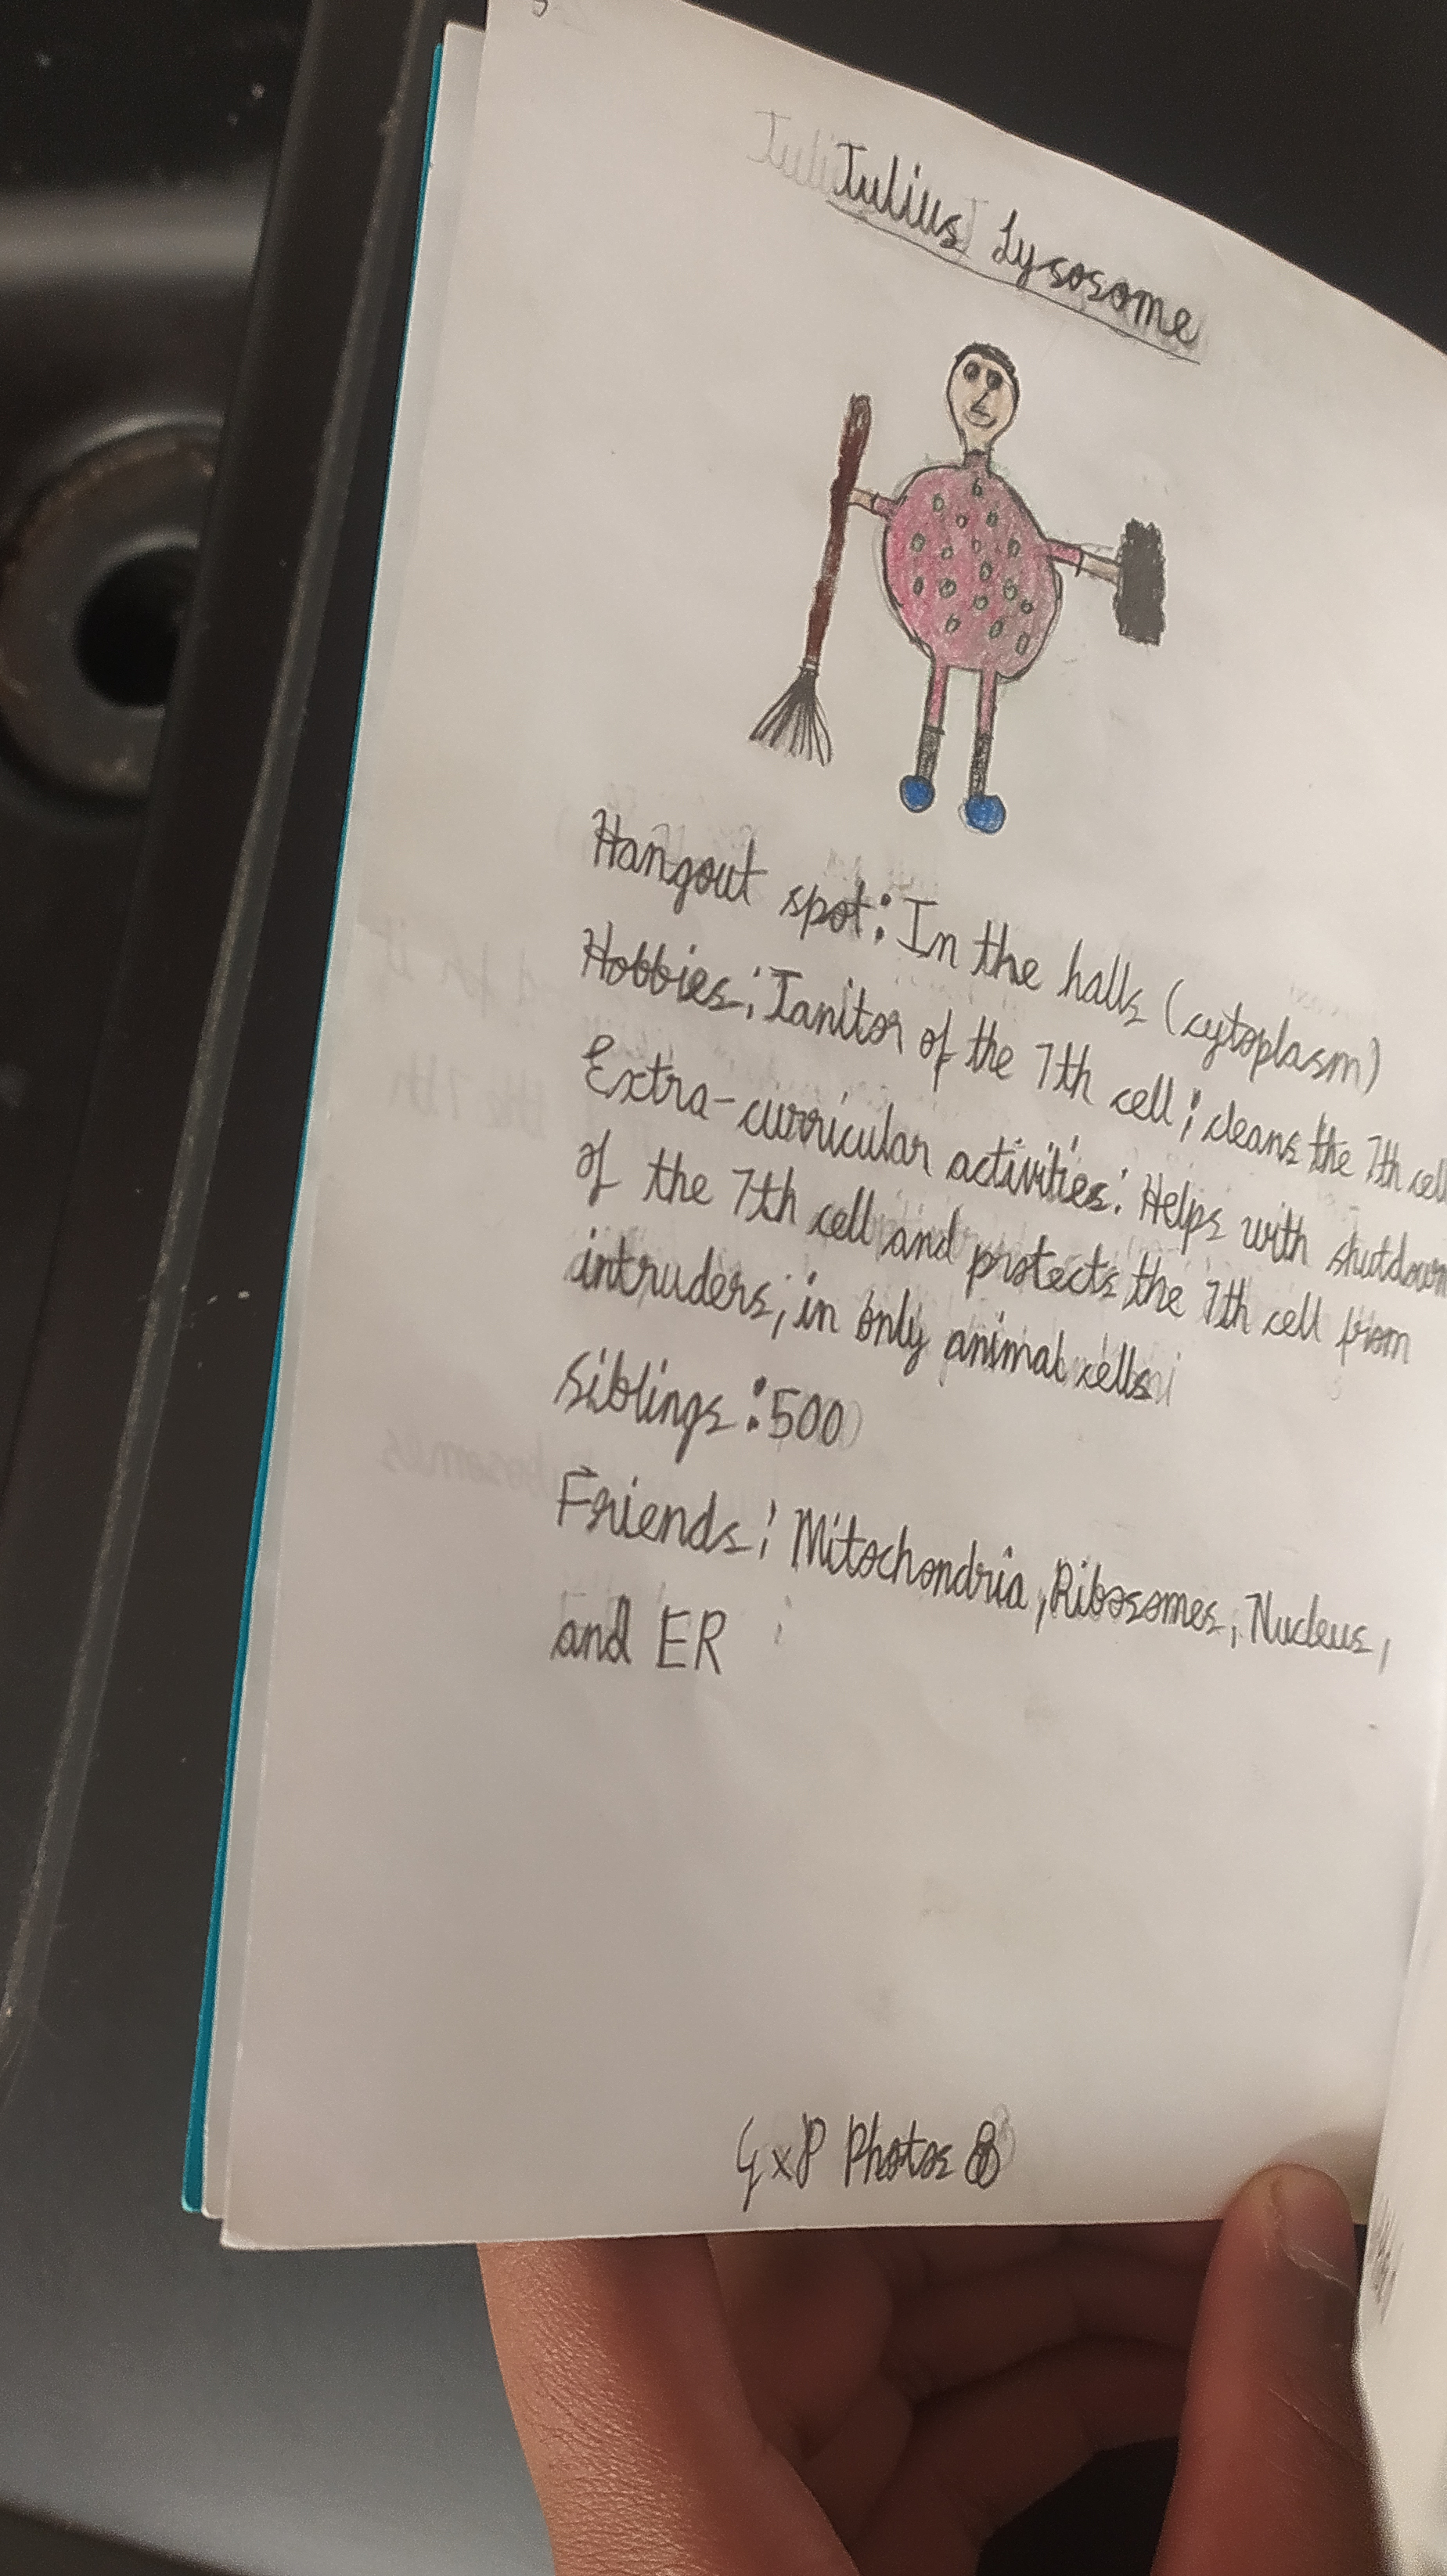 Julius Lysosome
Hangout spot: In the halls (cytoplasm)
Hobbies: Janitor of the 7th cell; cleans the 7th cell
Extra-curricular activities: Helps with shutdown
of the 7th cell and protects the 7th cell from
intruders; in only animal cells
Siblings: 500
Friends: Mitochondria, Ribosomes, Nucleus,
and ER
GxP Photos 8